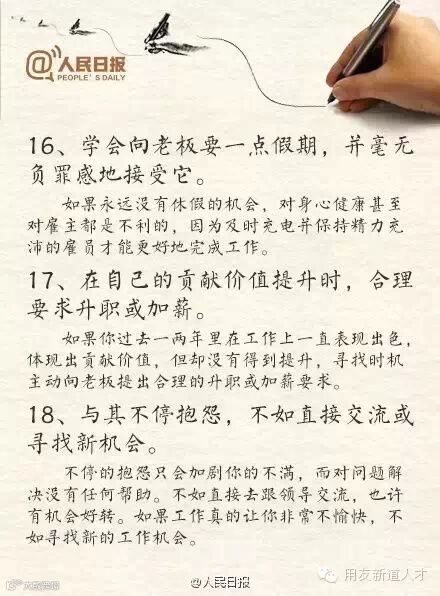 @人民日报
PEOPLE'S DAILY
16、学会向老板要一点假期，并毫无
负罪感地接受它。
如果永远没有休假的机会，对身心健康甚至
对雇主都是不利的，因为及时充电并保持精力充
沛的雇员才能更好地完成工作。
17、在自己的贡献价值提升时，合理
要求升职或加薪。
如果你过去一两年里在工作上一直表现出色，
体现出贡献价值，但却没有得到提升，寻找时机
主动向老板提出合理的升职或加薪要求。
18、与其不停抱怨，不如直接交流或
寻找新机会。
不停的抱怨只会加剧你的不满，而对问题解
决没有任何帮助。不如直接去跟领导交流，也许
有机会好转。如果工作真的让你非常不愉快，不
如寻找新的工作机会。
@人民日报
用友新道人才